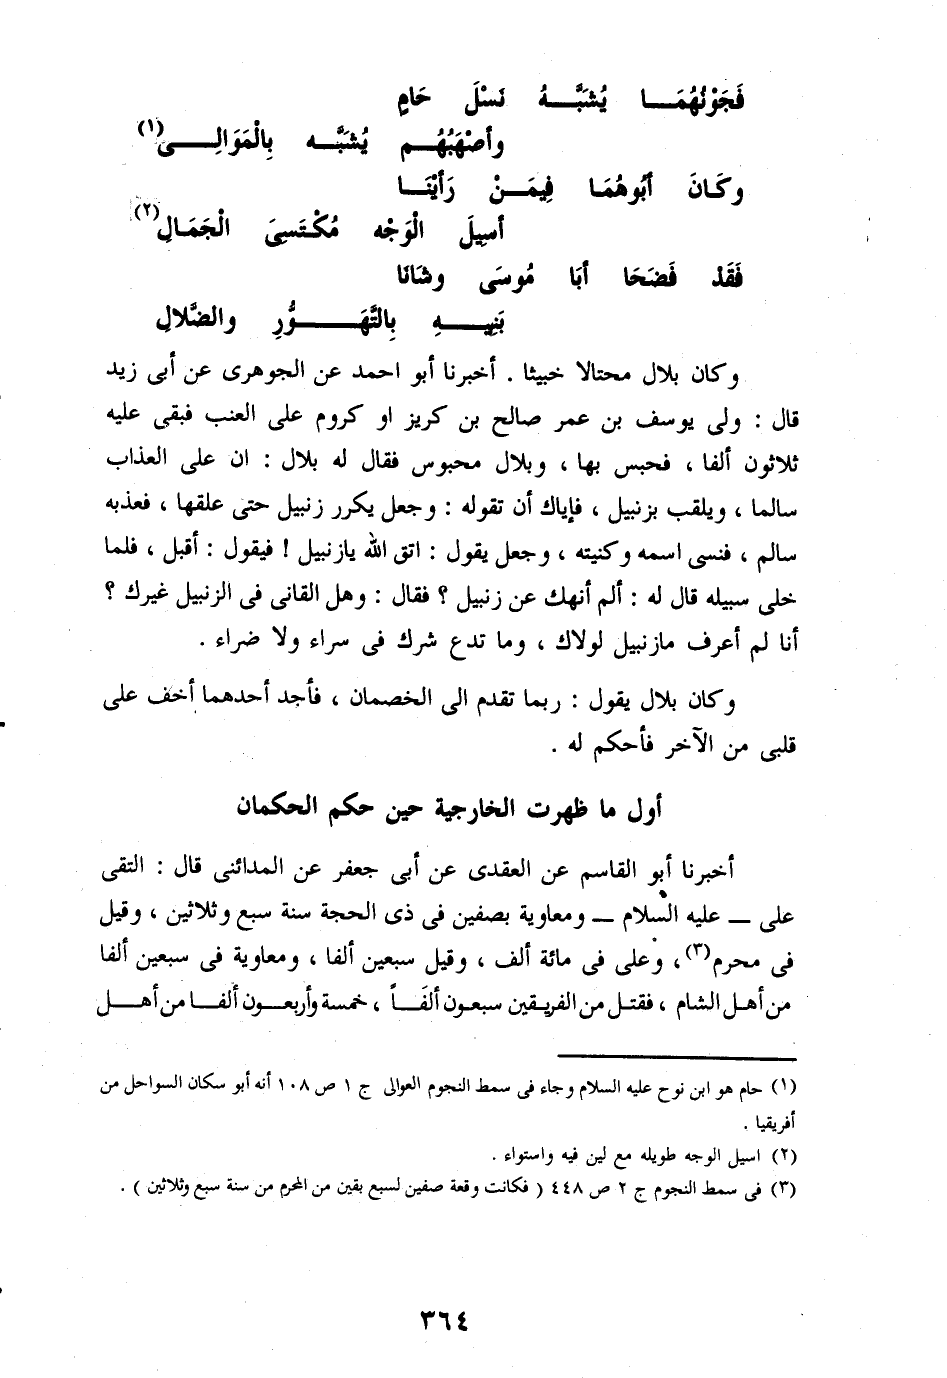 فَجَوْنُهُمَـــا يُشَبَّـــهُ نَسْلَ حَامٍ
وأصْهَبُهُـــم يُشَبَّـــه بِالْمَوَالِــــى(١)
وكَـانَ أبُوهُمَا فِيمَــنْ رَأيْنَـــا
أسِيلَ الْوَجْه مُكْـتَسِىَ الْجَمَـالِ(٢)
فَقَدْ فَضَحَا أبَا مُوسَى وشَانَا
بَنِيـــهِ بِالتَّهَـــوُّرِ والضَّلالِ
وكان بلال محتالا خبيثا . أخبرنا أبو احمد عن الجوهرى عن أبى زيد
قال : ولى يوسف بن عمر صالح بن كريز او كروم على العنب فبقى عليه
ثلاثون ألفا ، فحبس بها ، وبلال محبوس فقال له بلال : ان على العذاب
سالما ، ويلقب بزنبيل ، فإياك أن تقوله : وجعل يكرر زنبيل حتى علقها ، فعذبه
سالم ، فنسى اسمه وكنيته ، وجعل يقول : اتق الله يازنبيل ! فيقول : أقبل ، فلما
خلى سبيله قال له : ألم أنهك عن زنبيل ؟ فقال : وهل القانى فى الزنبيل غيرك ؟
أنا لم أعرف مازنبيل لولاك ، وما تدع شرك فى سراء ولا ضراء .
وكان بلال يقول : ربما تقدم الى الخصمان ، فأجد أحدهما أخف على
قلبى من الآخر فأحكم له .
أول ما ظهرت الخارجية حين حكم الحكمان
أخبرنا أبو القاسم عن العقدى عن أبى جعفر عن المدائنى قال : التقى
على — عليه السلام — ومعاوية بصفين فى ذى الحجة سنة سبع وثلاثين ، وقيل
فى محرم(٣)، وعلى فى مائة ألف ، وقيل سبعين ألفا ، ومعاوية فى سبعين ألفا
من أهـل الشام ، فقتـل من الفريقـين سبعـون ألفَـــاً ، خمسة وأربعـــون ألفـــا من أهـــل
(١) حام هو ابن نوح عليه السلام وجاء فى سمط النجوم العوالى ج ١ ص ١٠٨ أنه أبو سكان السواحل من
أفريقيا .
(٢) اسيل الوجه طويله مع لين فيه واستواء .
(٣) فى سمط النجوم ج ٢ ص ٤٤٨ ( فكانت وقعة صفين لسبع بقين من المحرم من سنة سبع وثلاثين ) .
٣٦٤